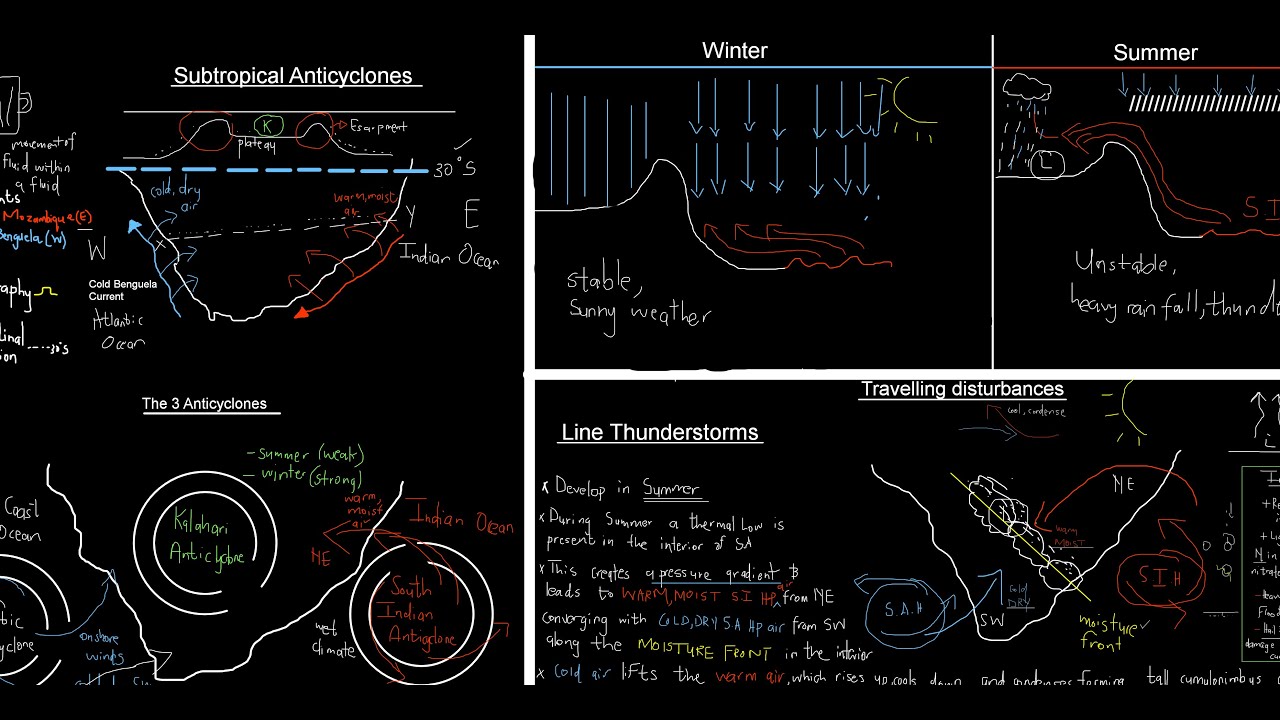 Subtropical Anticyclones
K
Escarpment
plateau
30°S
movement of
fluid within
a fluid
Mozambique(E)
Benguela(W)
cold, dry
air
warm, moist
air
Y
E
W
X
Indian Ocean
Cold Benguela
Current
Atlantic
Ocean
30°S
Winter
stable,
Sunny weather
Summer
L
SI
Unstable,
heavy rainfall, thund
The 3 Anticyclones
- Summer (weak)
- winter (strong)
Coast
Ocean
Kalahari
Anticyclone
warm,
moist
air
Indian Ocean
NE
South
Indian
Anticyclone
wet
climate
onshore
winds
Travelling disturbances
cool, condense
Line Thunderstorms
x Develop in Summer
x During Summer a thermal Low is
present in the interior of SA
x This creates a pressure gradient &
leads to WARM, MOIST SI HP air from NE
converging with COLD, DRY SA Hp air from SW
along the MOISTURE FRONT in the interior
x Cold air lifts the warm air, which rises up, cools down and condenses forming tall cumulonimbus
NE
warm
MOIST
S.I.H
S.A.H
Cold
DRY
SW
moisture
front
L